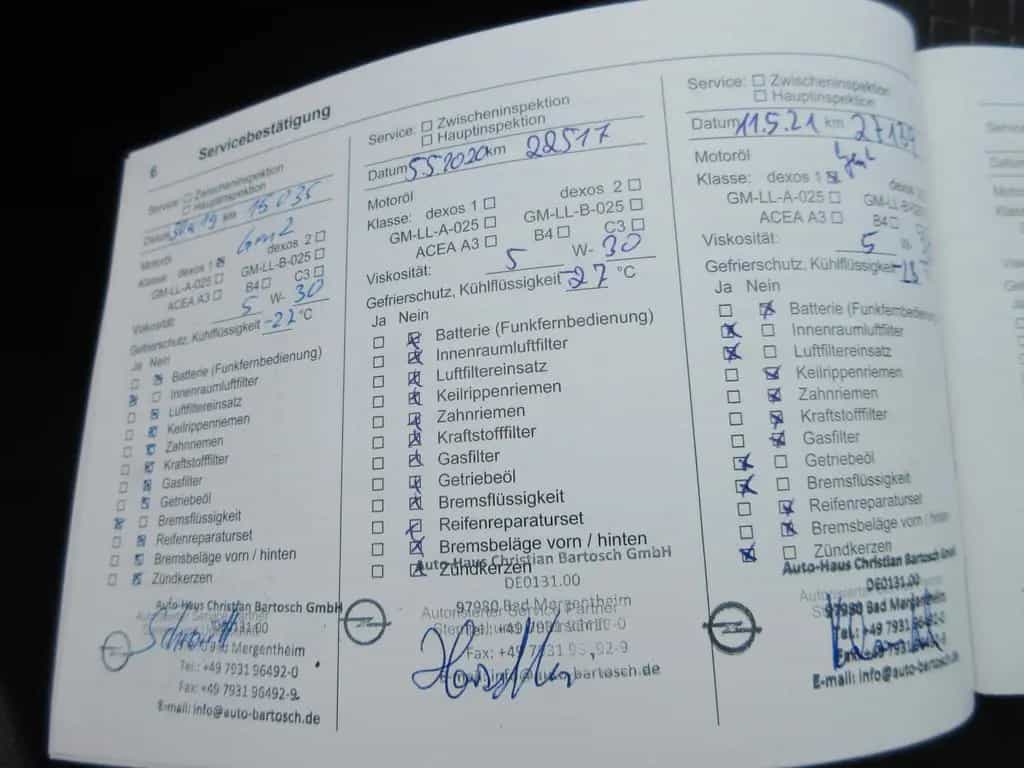 6 Servicebestätigung
Service: Zwischeninspektion
Hauptinspektion
Datum km 15035
Motoröl Gm2
Klasse: dexos 1 dexos 2
GM-LL-A-025 GM-LL-B-025
ACEA A3 B4 C3
Viskosität: 5 W- 30
Gefrierschutz, Kühlflüssigkeit -22 °C
Ja Nein
Batterie (Funkfernbedienung)
Innenraumluftfilter
Luftfiltereinsatz
Keilrippenriemen
Zahnriemen
Kraftstofffilter
Gasfilter
Getriebeöl
Bremsflüssigkeit
Reifenreparaturset
Bremsbeläge vorn / hinten
Zündkerzen
Auto-Haus Christian Bartosch GmbH
Mergentheim
Tel.: +49 7931 96492-0
Fax: +49 7931 96492-9
E-mail: info@auto-bartosch.de
Service: Zwischeninspektion
Hauptinspektion
Datum 5.5.2020 km 22517
Motoröl
Klasse: dexos 1 dexos 2
GM-LL-A-025 GM-LL-B-025
ACEA A3 B4 C3
Viskosität: 5 W- 30
Gefrierschutz, Kühlflüssigkeit -27 °C
Ja Nein
Batterie (Funkfernbedienung)
Innenraumluftfilter
Luftfiltereinsatz
Keilrippenriemen
Zahnriemen
Kraftstofffilter
Gasfilter
Getriebeöl
Bremsflüssigkeit
Reifenreparaturset
Bremsbeläge vorn / hinten
Zündkerzen
Auto-Haus Christian Bartosch GmbH
DE0131.00
97980 Bad Mergentheim
Autorisierter Service Partner
Fax: +49 7931
info@auto-bartosch.de
Service: Zwischeninspektion
Hauptinspektion
Datum 11.5.21 km
Motoröl
Klasse: dexos 1 dexos
GM-LL-A-025 GM-LL-B-025
ACEA A3 B4
Viskosität: 5 W-
Gefrierschutz, Kühlflüssigkeit
Ja Nein
Batterie (Funkfernbedienung)
Innenraumluftfilter
Luftfiltereinsatz
Keilrippenriemen
Zahnriemen
Kraftstofffilter
Gasfilter
Getriebeöl
Bremsflüssigkeit
Reifenreparaturset
Bremsbeläge vorn / hinten
Zündkerzen
Auto-Haus Christian Bartosch GmbH
DE0131.00
97980 Bad Mergentheim
Tel.: +49 7931
E-mail: info@auto-bartosch.de